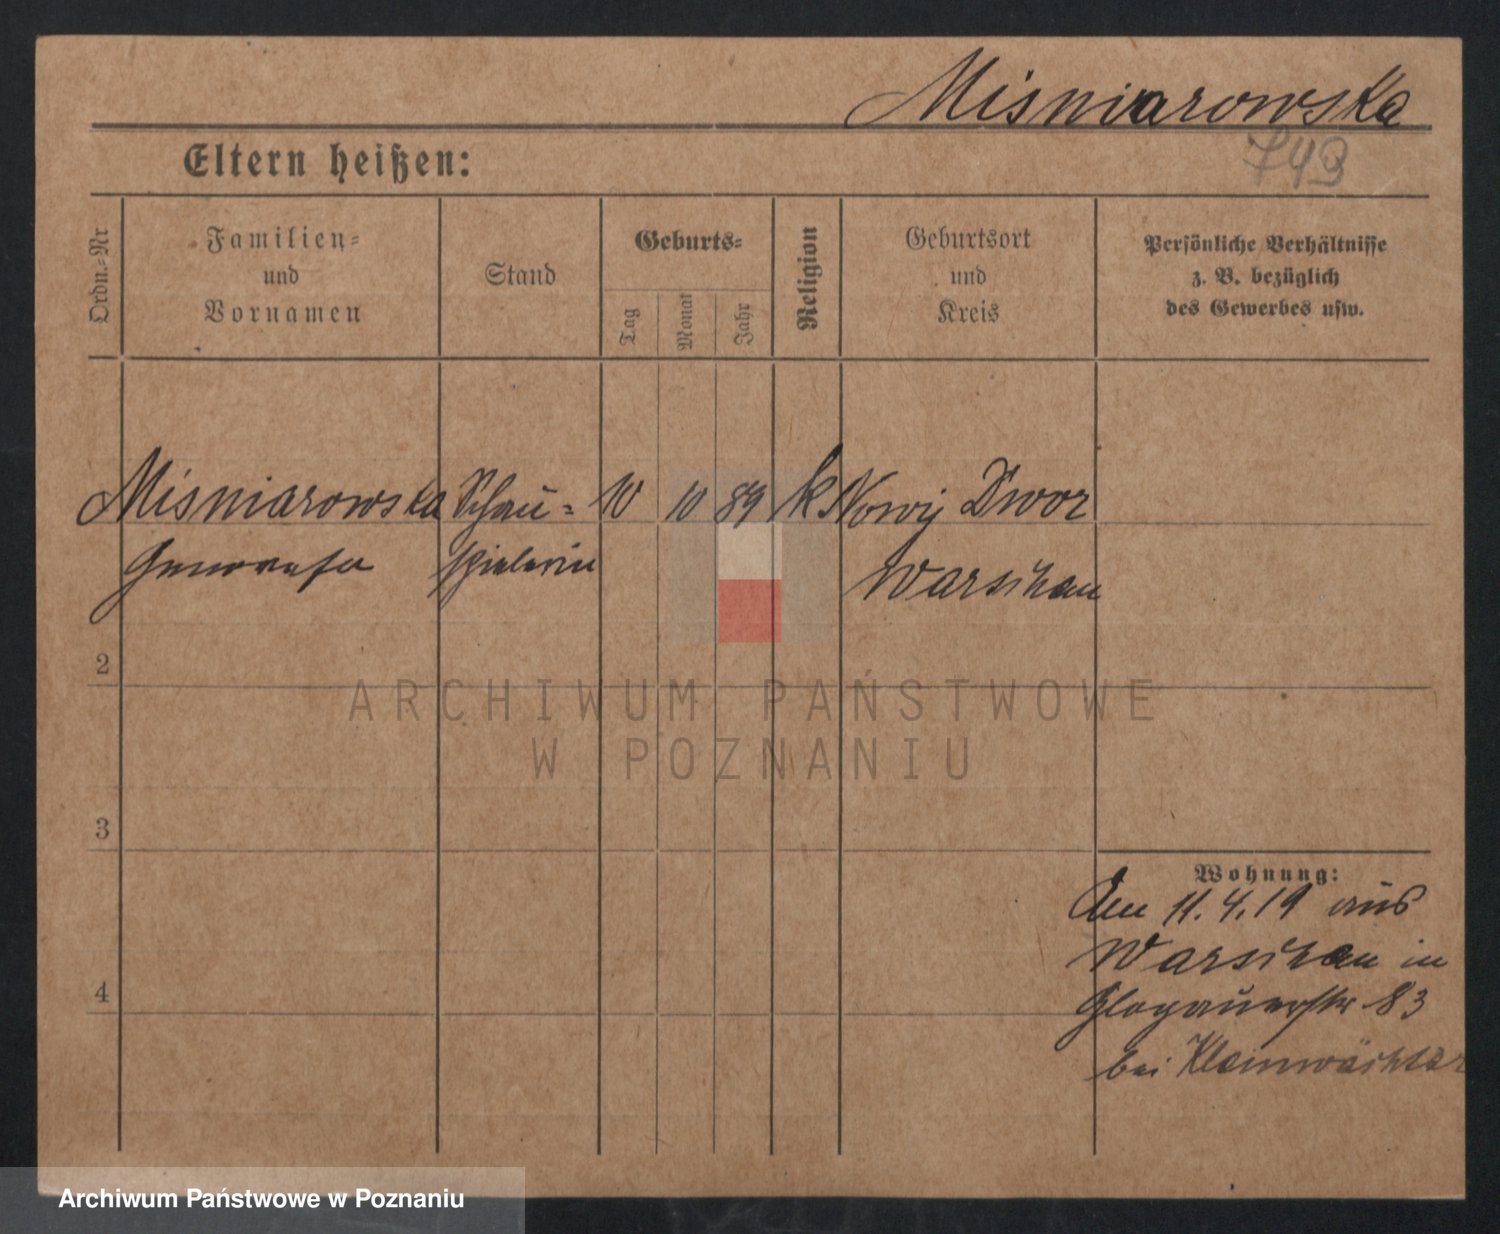 Misniarowska
Eltern heißen:
743
Ordn.-Nr
Familien-
und
Vornamen
Stand
Geburts-
Tag
Monat
Jahr
Religion
Geburtsort
und
Kreis
Persönliche Verhältnisse
z. B. bezüglich
des Gewerbes usw.
Misniarowska Schau- 10 10 89 k Nowy Dwor
Genowefa spielerin Warschau
2
ARCHIWUM PAŃSTWOWE
W POZNANIU
3
Wohnung:
Am 11.4.19 aus
Warschau in
4
Glogauerstr 83
bei Kleinwächter
Archiwum Państwowe w Poznaniu